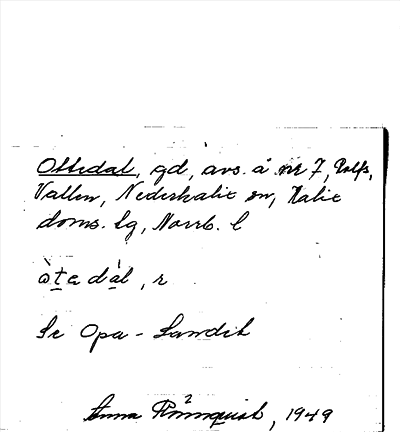 Ottedal, gd, avs. å nr 7, Rolfs,
Vallen, Nederkalix sn, Kalix
doms. lg, Norrb. l
òtedàl, r
Se Opa-Landit
Anna Rönnquist, 1949